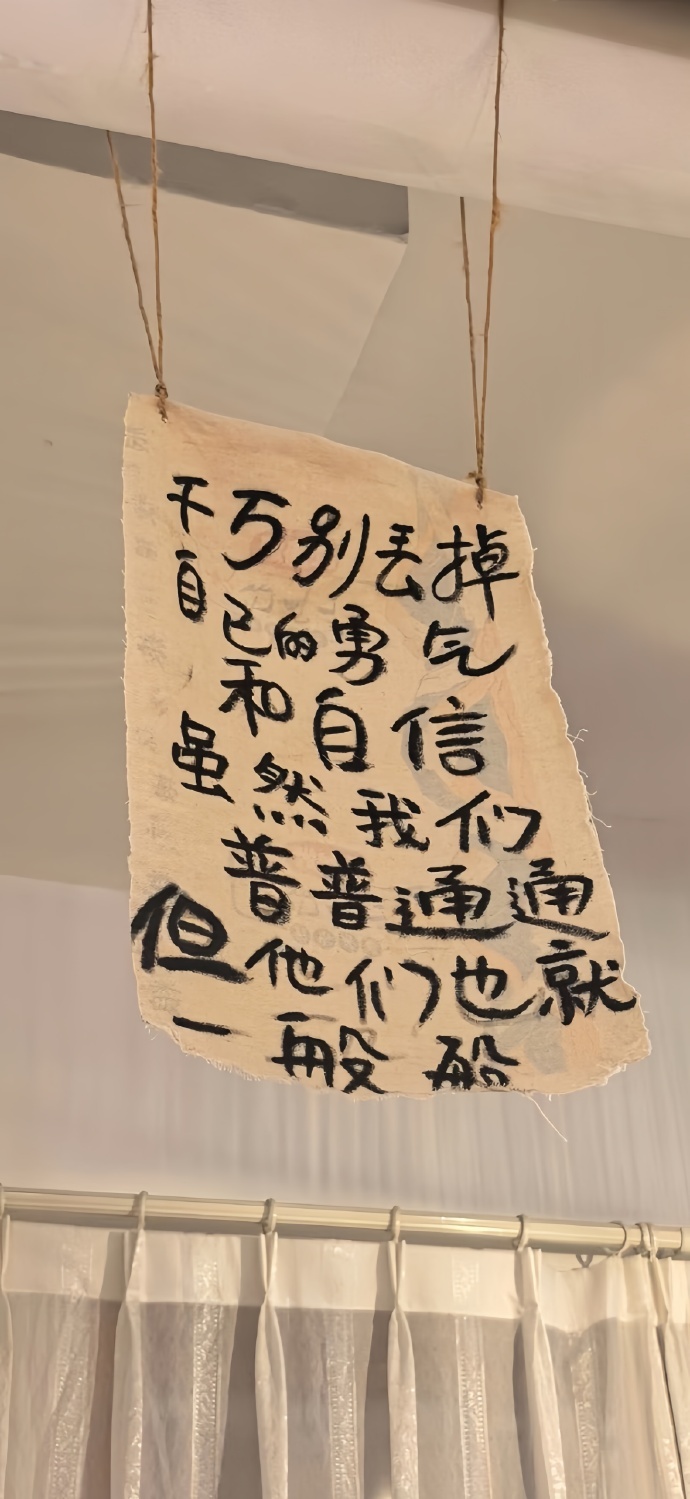 千万别丢掉
自己的勇气
和自信
虽然我们
普普通通
但他们也就
一般般